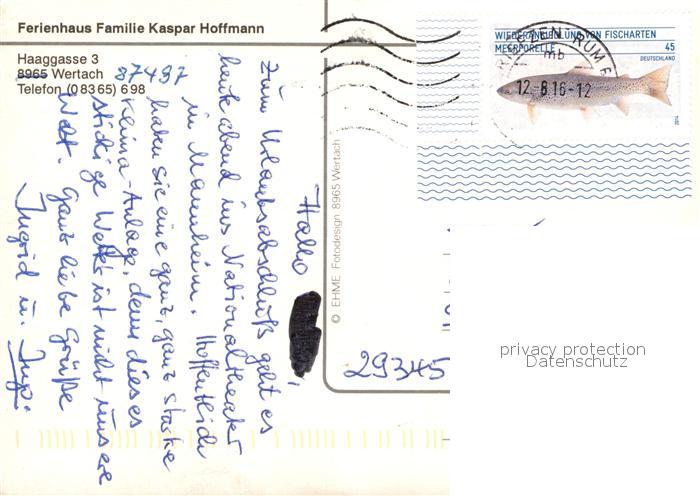 Ferienhaus Familie Kaspar Hoffmann
Haaggasse 3
8965 Wertach
87497
Telefon (0 83 65) 6 98
Hallo
zum Urlaubsabschluß geht es
heute abend ins Nationaltheater
in Mannheim. Hoffentlich
haben sie eine ganz, ganz starke
Klima-Anlage, denn dieses
stickige Wetter ist nicht unsere
Welt. Ganz liebe Grüße
Ingrid u.
© EHME Fotodesign 8965 Wertach
WIEDERANSIEDLUNG VON FISCHARTEN
MEERFORELLE
45
DEUTSCHLAND
2014
mb
12.-8.16-12
29345
privacy protection
Datenschutz